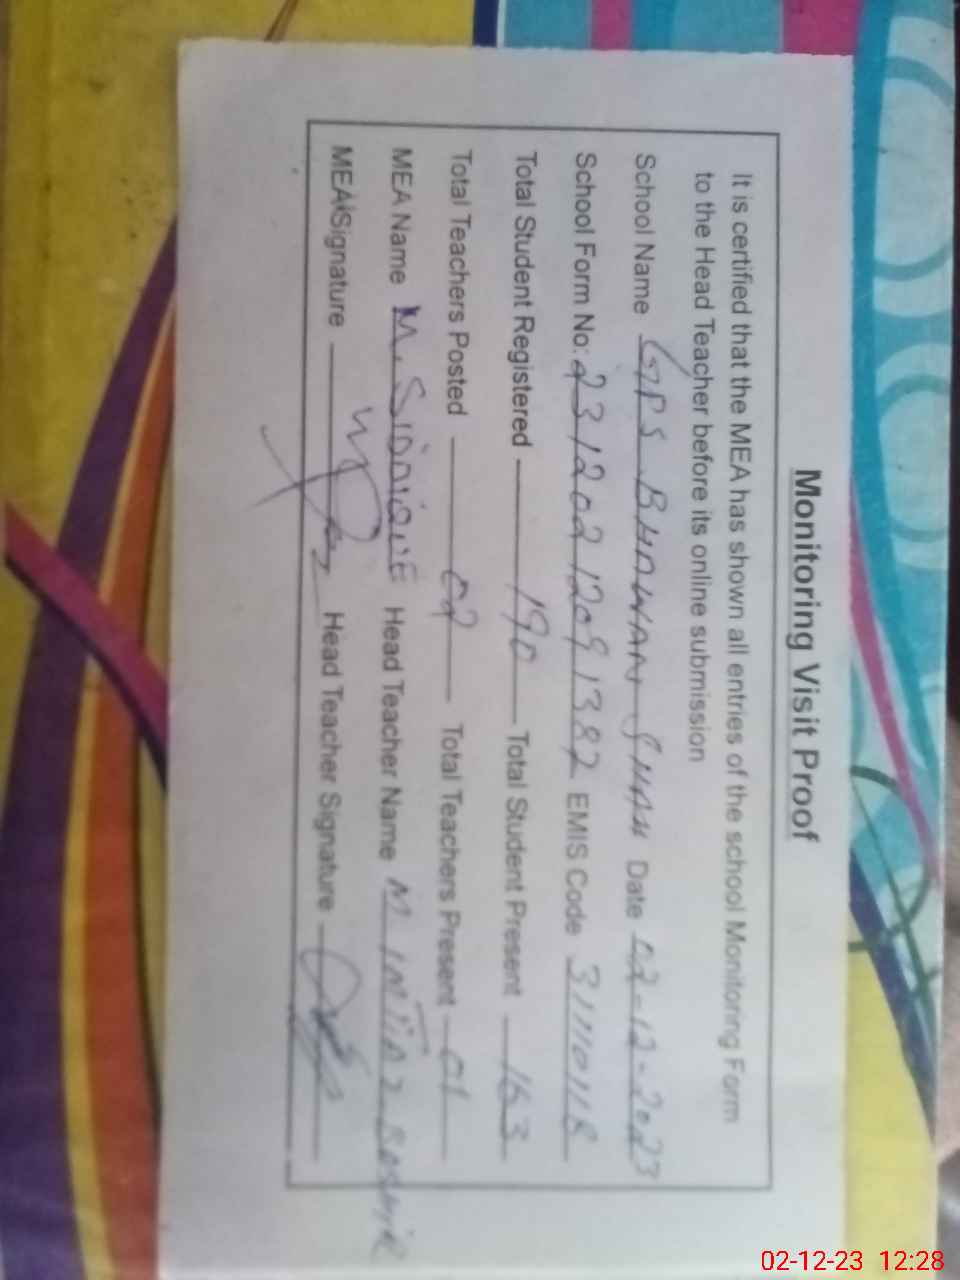 Monitoring Visit Proof
It is certified that the MEA has shown all entries of the school Monitoring Form
to the Head Teacher before its online submission
School Name GPS BHAWAN SHAH Date 02-12-2023
School Form No: 23120212091382 EMIS Code 31110118
Total Student Registered 190 Total Student Present 163
Total Teachers Posted 02 Total Teachers Present 01
MEA Name M. SIDDIQUE Head Teacher Name M IMTIAZ BASHIR
MEA Signature Head Teacher Signature
02-12-23 12:28